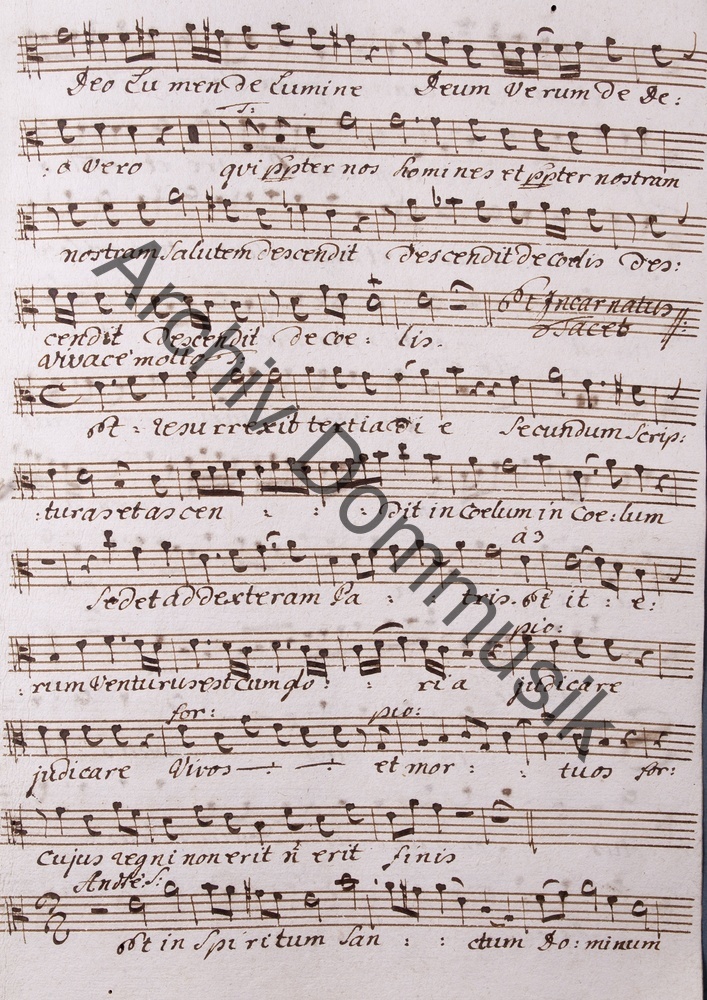 Deo Lu men de Lumine Deum Verum de De:
S:
:o Vero qui ppter nos homines et ppter nostram
nostram Salutem descendit Descendit de coelis Des:
cendit Descendit de coe: lis. Et Incarnatus
tacet
vivace molto
Et : resurrexit tertia Di e Secundum Scrip:
:turas et ascen : : : Dit in Coelum in Coe:lum
a3
Sedet ad dexteram Pa : : tris. Et it : e:
pio:
:rum Venturus est Cum glo : : ri a judicare
for: pio:
judicare Vivos et mor : : tuos for:
Cujus regni non erit n erit finis
Andte: S:
Et in Spiritum San : : ctum Do: minum
Archiv Dommusik